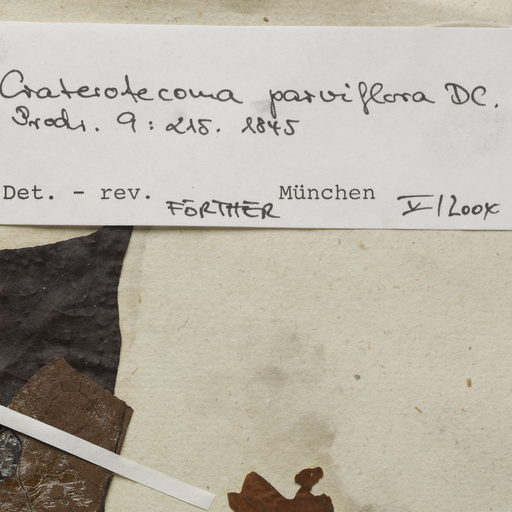 Craterotecoma parviflora DC.
Prodr. 9: 215. 1845
Det. - rev. FÖRTHER München V/200X